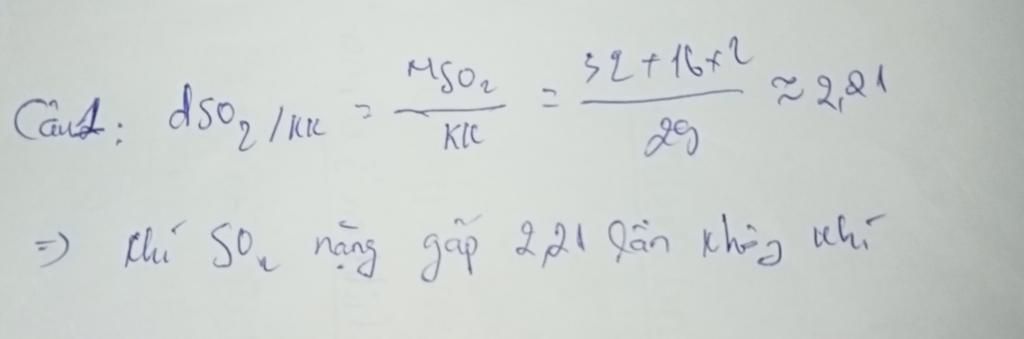 Câu1: dSO₂/KK = MSO₂/KK = 32+16×2/29 ≈ 2,21
=> khí SO₂ nặng gấp 2,21 lần không khí